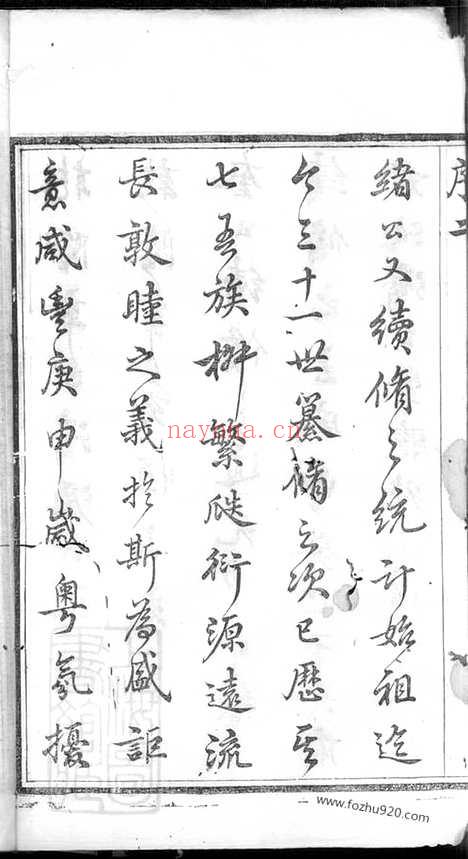 序二
緒公又續脩之統計始祖迄
今三十一世纂脩之次已歷其
七吾族椒繁瓞衍源遠流
長敦睦之義於斯為盛詎
意咸豐庚申歲粵氛擾
nayona.cn
www.fozhu920.com